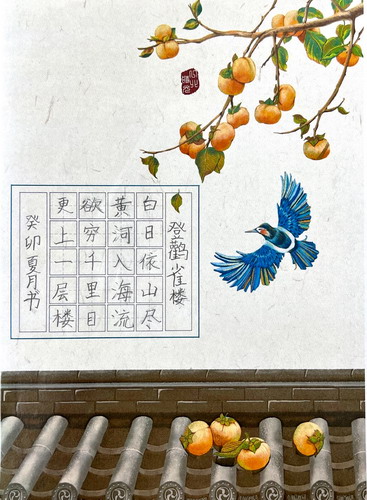 登鹳雀楼
白日依山尽
黄河入海流
欲穷千里目
更上一层楼
癸卯夏月书